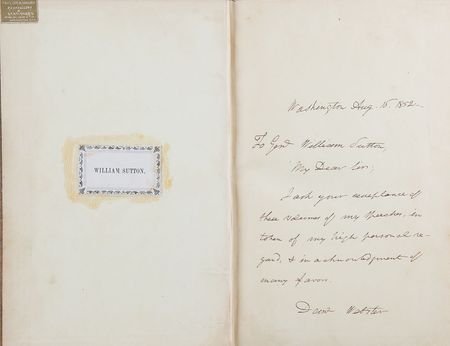 WILLIAM SUTTON.
Washington Aug. 1852
To Genl William Sutton,
My Dear Sir,
I ask your acceptance of
these volumes of my Speeches, in
token of my high personal re-
gard, & in acknowledgment of
many favors.
Danl Webster